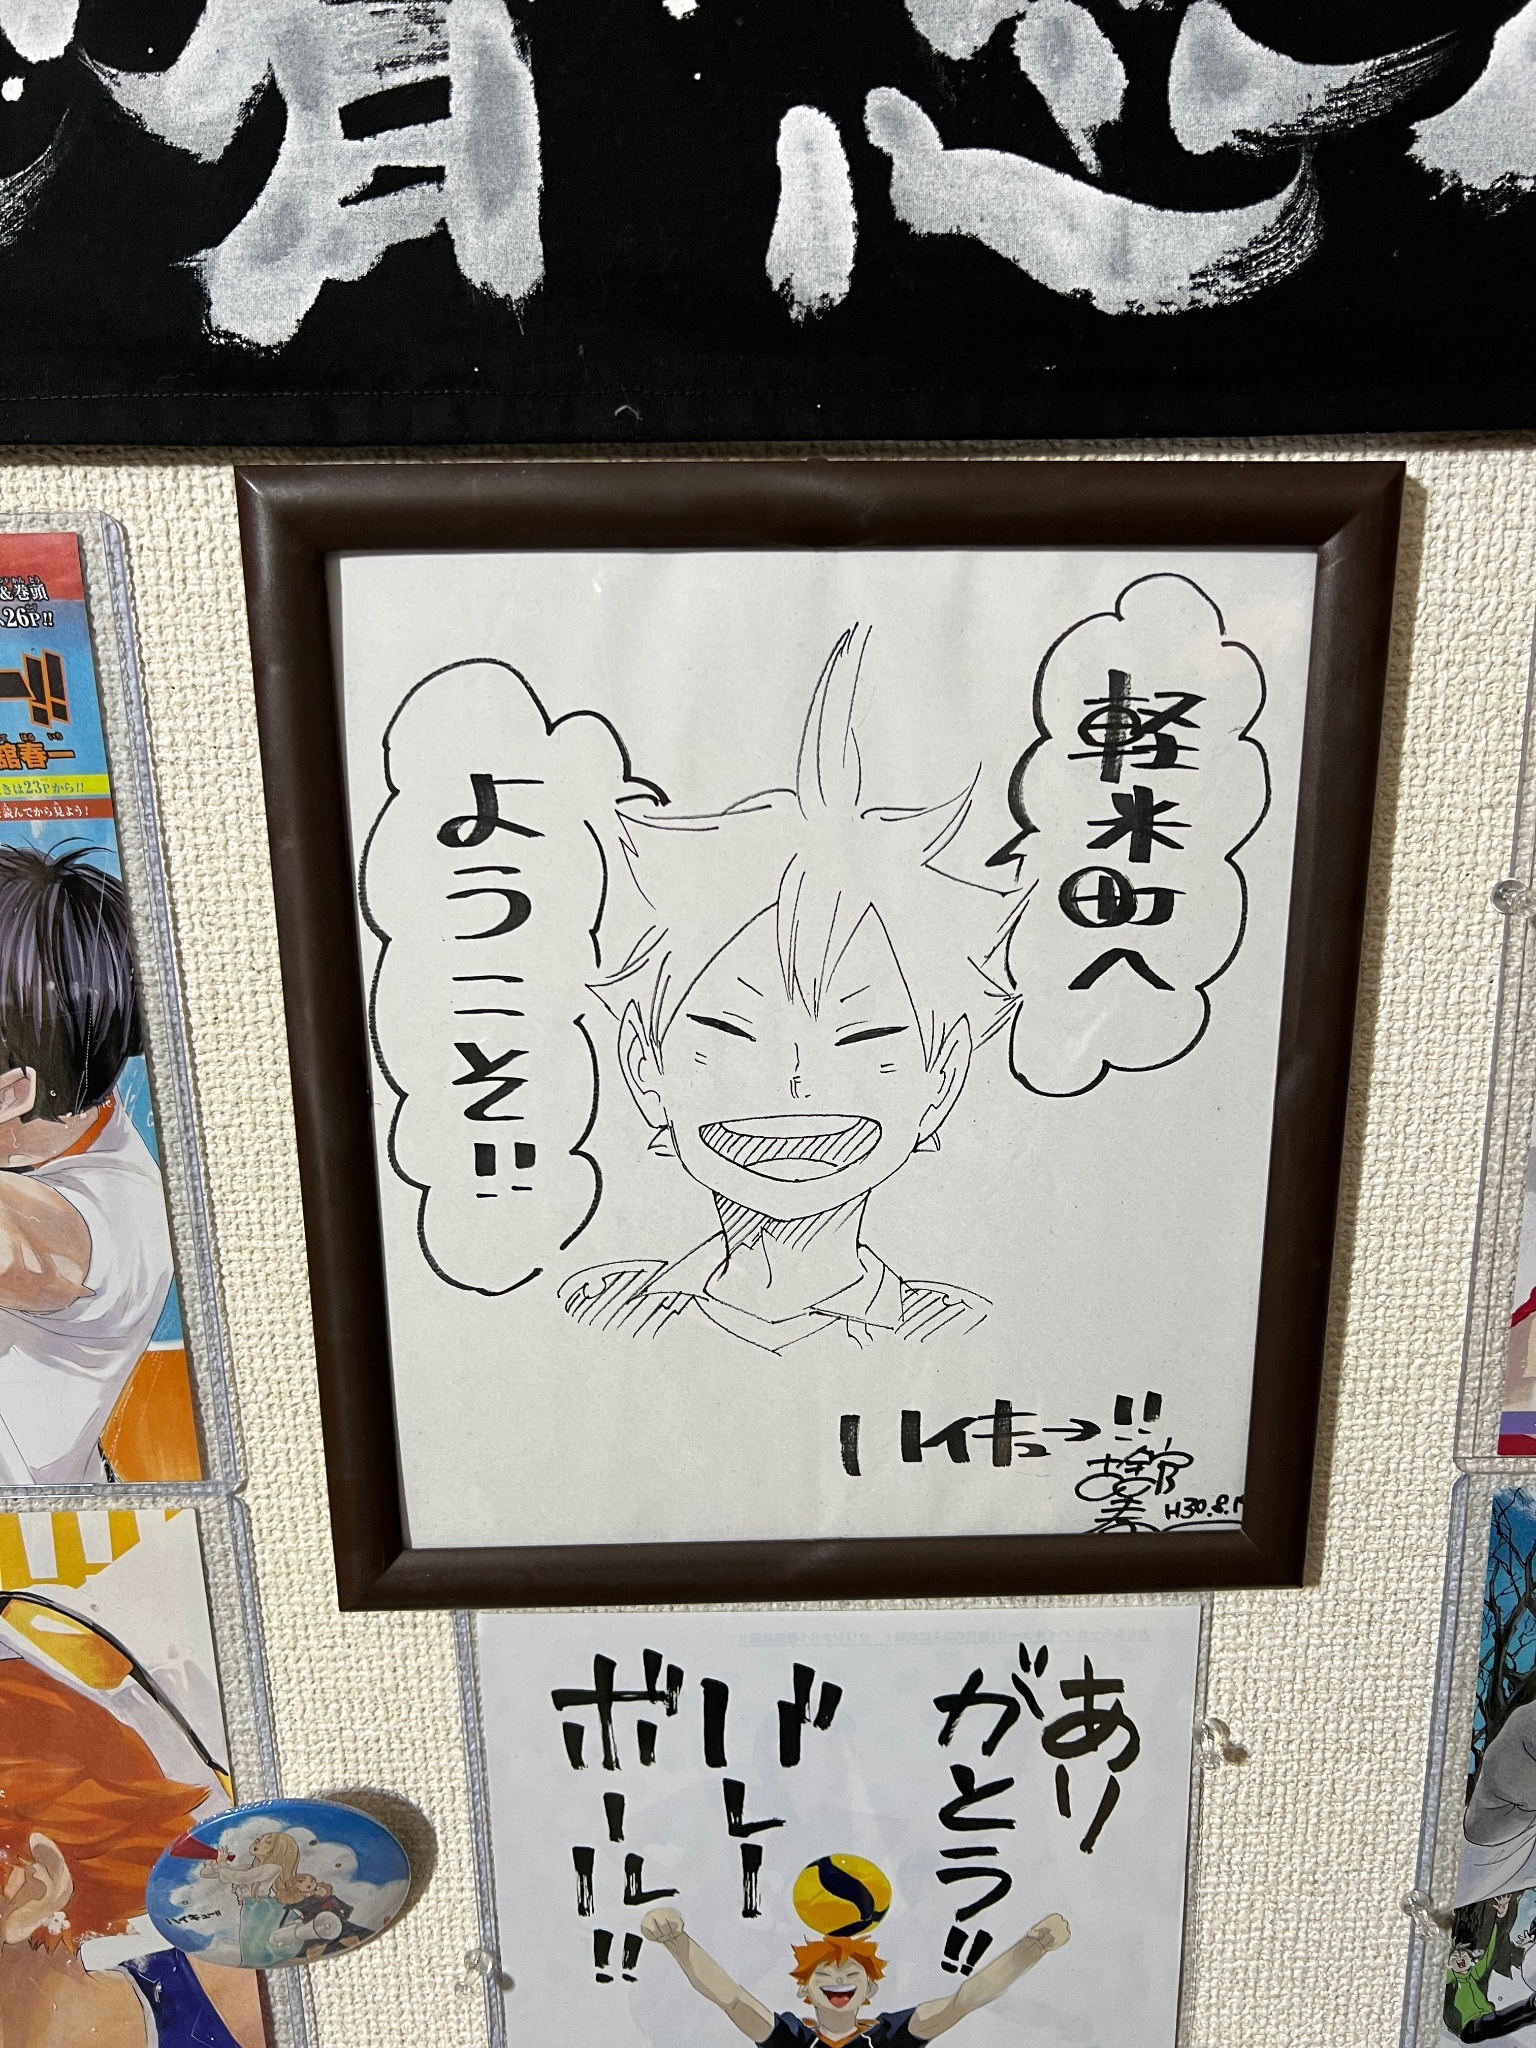 軽米町へ
ようこそ!!
ハイキュー!!
古舘春
H30.8.1
&巻頭
26P!!
ー!!
舘春一
きは23Pから!!
読んでから見よう!
ありがとう!!
バレーボール!!
ハイキュー!!